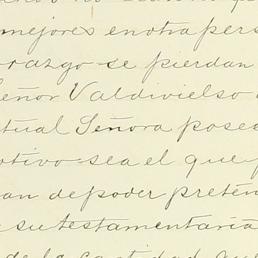 mejores en otra pers
razgo se pierdan
Señor Valdivielso
tual Señora posee
otivo sea el que
an de poder preten
su testamentaria
de la cantidad que